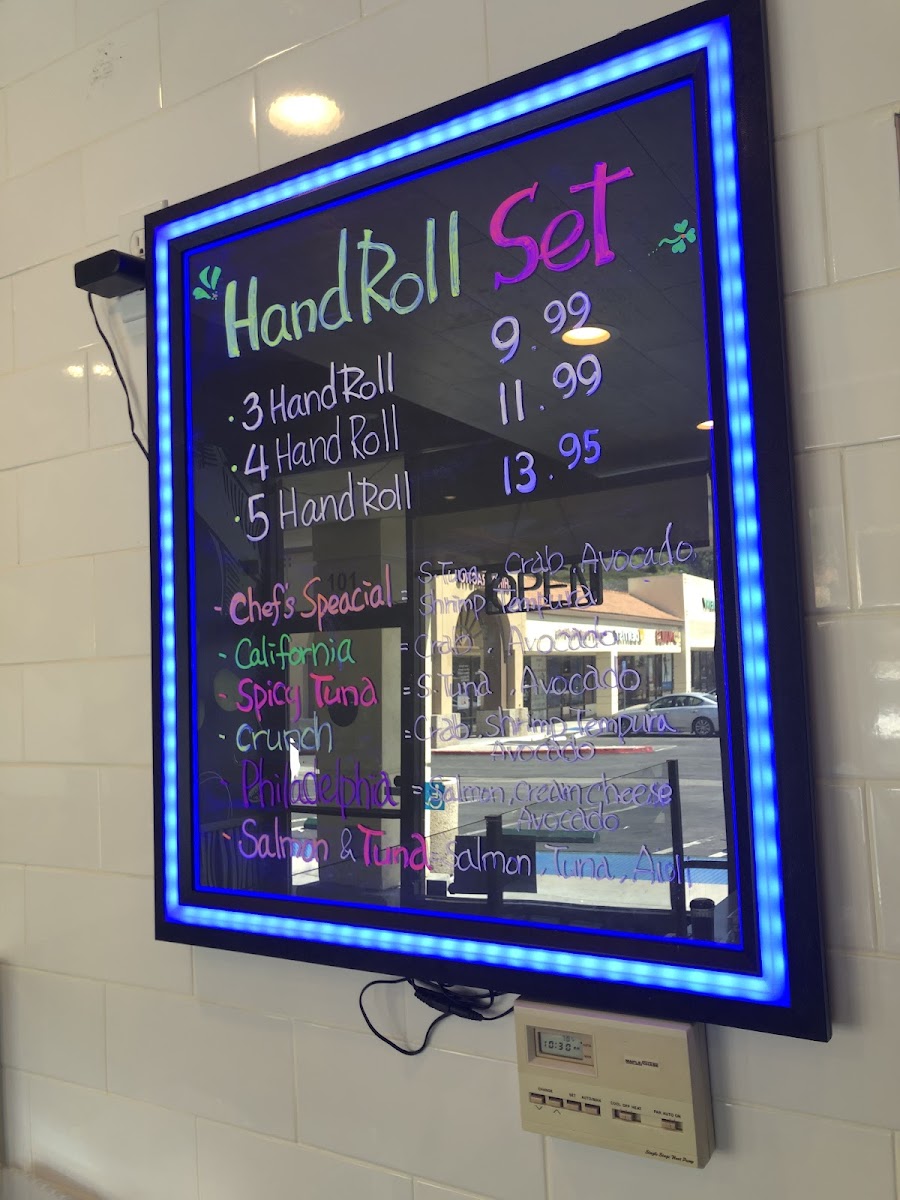 Hand Roll Set
· 3 Hand Roll 9.99
· 4 Hand Roll 11.99
· 5 Hand Roll 13.95
- Chef's Speacial = S.Tuna, Crab, Avocado,
Shrimp Tempura
- California = Crab, Avocado
- Spicy Tuna = S.Tuna, Avocado
- Crunch = Crab, Shrimp Tempura
Avocado
- Philadelphia = Salmon, cream cheese
Avocado
- Salmon & Tuna Salmon, Tuna, Aioli
OPEN
101
10:30